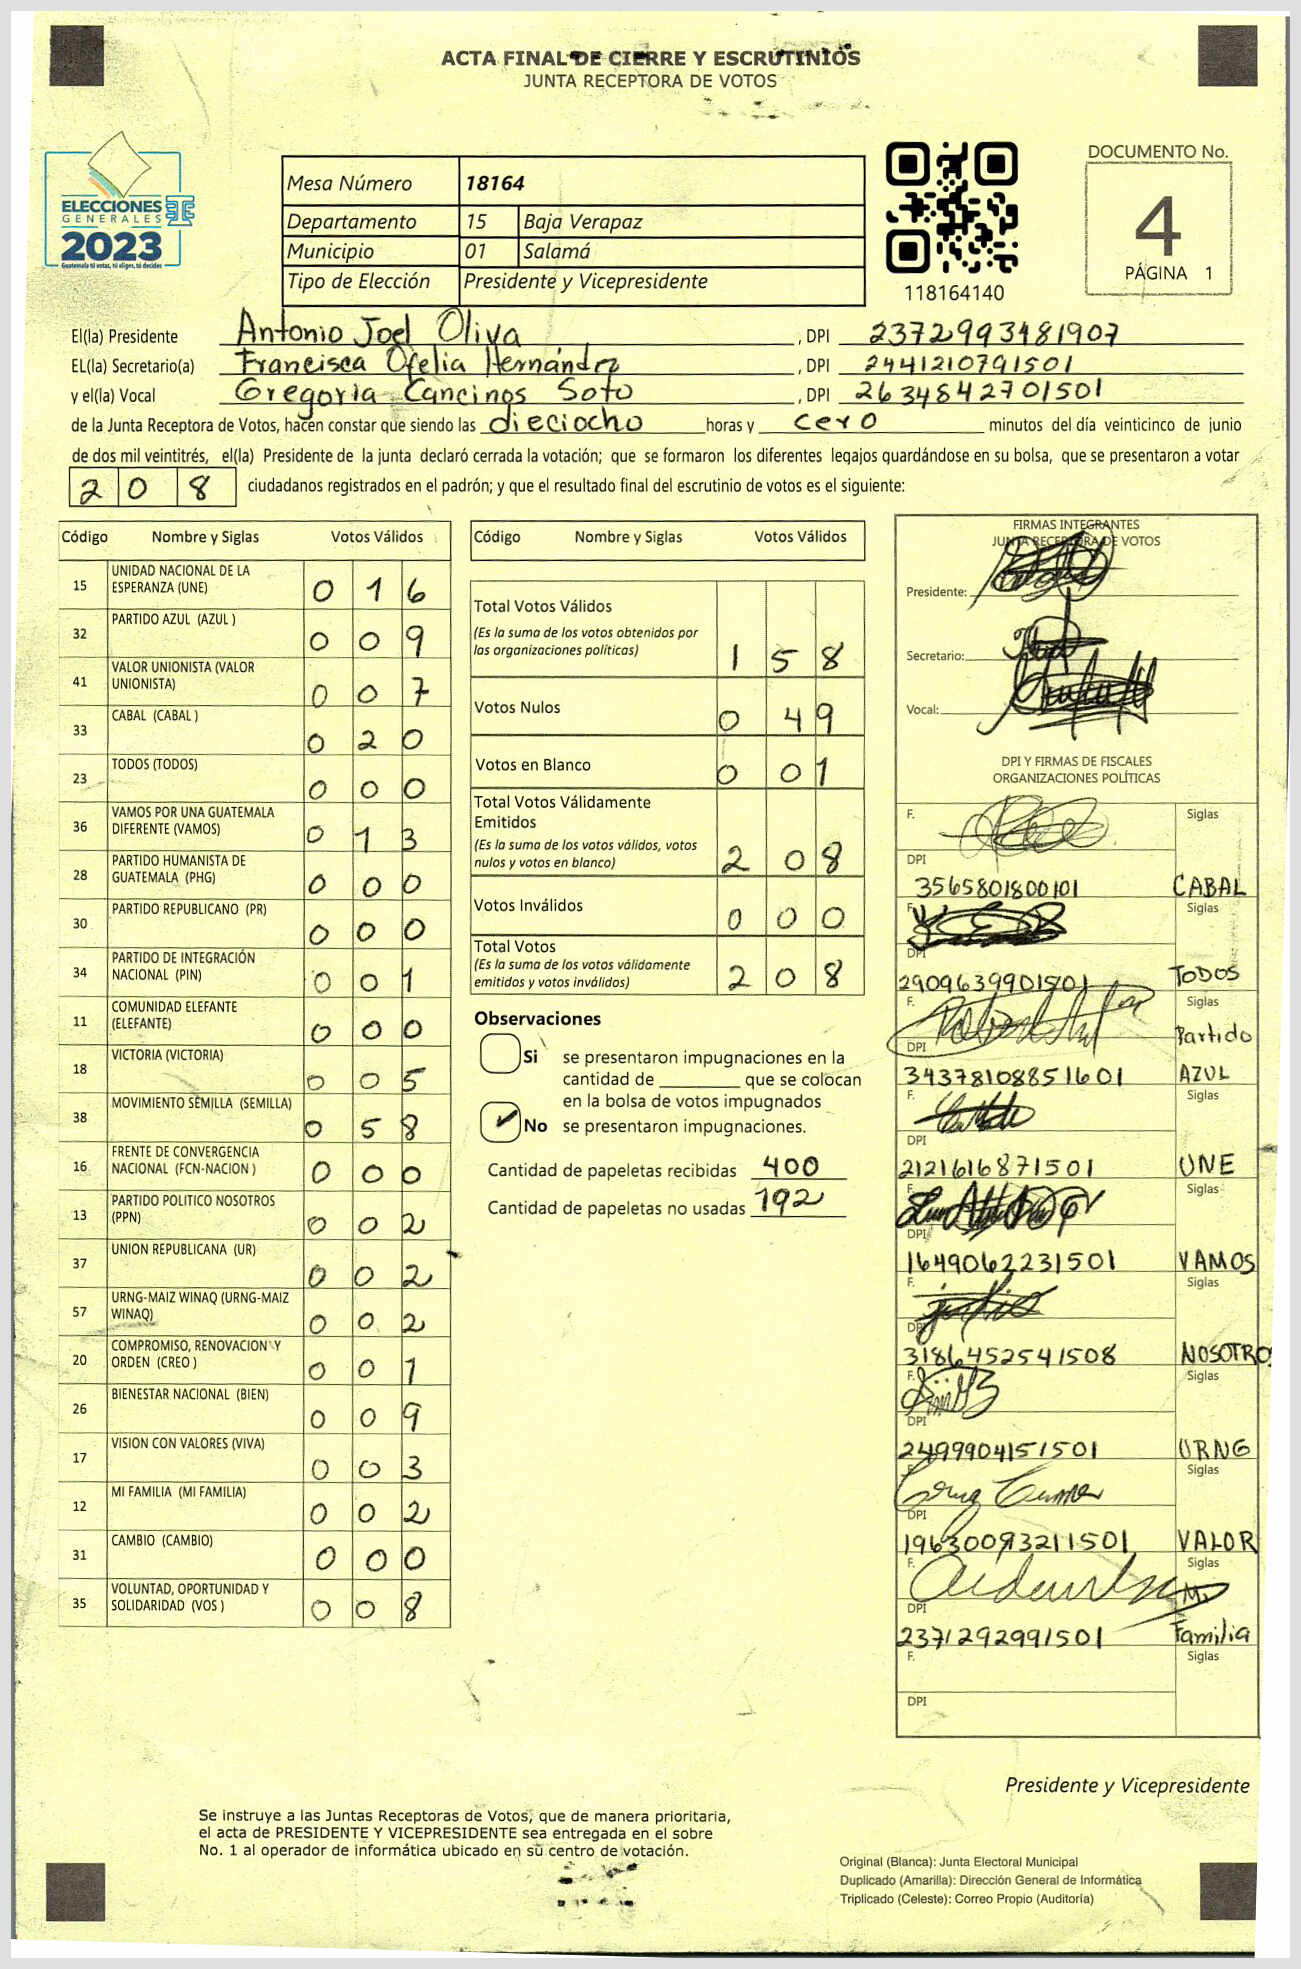 ACTA FINAL DE CIERRE Y ESCRUTINIOS
JUNTA RECEPTORA DE VOTOS
ELECCIONES
GENERALES
2023
Guatemala tú votas, tú eliges, tú decides
Mesa Número 18164
Departamento 15 Baja Verapaz
Municipio 01 Salamá
Tipo de Elección Presidente y Vicepresidente
118164140
DOCUMENTO No.
4
PÁGINA 1
El(la) Presidente Antonio Joel Oliva, DPI 2372993481907
EL(la) Secretario(a) Francisca Ofelia Hernández, DPI 2441210791501
y el(la) Vocal Gregoria Cancinos Soto, DPI 2634842701501
de la Junta Receptora de Votos, hacen constar que siendo las dieciocho horas y cero minutos del día veinticinco de junio
de dos mil veintitrés, el(la) Presidente de la junta declaró cerrada la votación; que se formaron los diferentes legajos guardándose en su bolsa, que se presentaron a votar
208 ciudadanos registrados en el padrón; y que el resultado final del escrutinio de votos es el siguiente:
Código Nombre y Siglas Votos Válidos
15 UNIDAD NACIONAL DE LA ESPERANZA (UNE) 016
32 PARTIDO AZUL (AZUL ) 009
41 VALOR UNIONISTA (VALOR UNIONISTA) 007
33 CABAL (CABAL ) 020
23 TODOS (TODOS) 000
36 VAMOS POR UNA GUATEMALA DIFERENTE (VAMOS) 013
28 PARTIDO HUMANISTA DE GUATEMALA (PHG) 000
30 PARTIDO REPUBLICANO (PR) 000
34 PARTIDO DE INTEGRACIÓN NACIONAL (PIN) 001
11 COMUNIDAD ELEFANTE (ELEFANTE) 000
18 VICTORIA (VICTORIA) 005
38 MOVIMIENTO SEMILLA (SEMILLA) 058
16 FRENTE DE CONVERGENCIA NACIONAL (FCN-NACION ) 000
13 PARTIDO POLITICO NOSOTROS (PPN) 002
37 UNION REPUBLICANA (UR) 002
57 URNG-MAIZ WINAQ (URNG-MAIZ WINAQ) 002
20 COMPROMISO, RENOVACION Y ORDEN (CREO ) 001
26 BIENESTAR NACIONAL (BIEN) 009
17 VISION CON VALORES (VIVA) 003
12 MI FAMILIA (MI FAMILIA) 002
31 CAMBIO (CAMBIO) 000
35 VOLUNTAD, OPORTUNIDAD Y SOLIDARIDAD (VOS ) 008
Código Nombre y Siglas Votos Válidos
Total Votos Válidos 158
(Es la suma de los votos obtenidos por
las organizaciones políticas)
Votos Nulos 049
Votos en Blanco 001
Total Votos Válidamente
Emitidos 208
(Es la suma de los votos válidos, votos
nulos y votos en blanco)
Votos Inválidos 000
Total Votos 208
(Es la suma de los votos válidamente
emitidos y votos inválidos)
Observaciones
Si se presentaron impugnaciones en la
cantidad de ________ que se colocan
en la bolsa de votos impugnados
No se presentaron impugnaciones.
Cantidad de papeletas recibidas 400
Cantidad de papeletas no usadas 192
FIRMAS INTEGRANTES
JUNTA RECEPTORA DE VOTOS
Presidente:
Secretario:
Vocal:
DPI Y FIRMAS DE FISCALES
ORGANIZACIONES POLÍTICAS
F. Siglas
DPI 3565801800101 CABAL
F. Siglas
DPI 2909639901501 TODOS
F. Siglas
DPI 34378108851601 Partido AZUL
F. Siglas
DPI 2121616871501 UNE
F. Siglas
DPI 1649062231501 VAMOS
F. Siglas
DPI 3186452541508 NOSOTROS
F. Siglas
DPI 2499904151501 URNG
F. Siglas
DPI 19630093211501 VALOR
F. Siglas
DPI 2371292991501 Mi Familia
F. Siglas
DPI
Presidente y Vicepresidente
Se instruye a las Juntas Receptoras de Votos, que de manera prioritaria,
el acta de PRESIDENTE Y VICEPRESIDENTE sea entregada en el sobre
No. 1 al operador de informática ubicado en su centro de votación.
Original (Blanca): Junta Electoral Municipal
Duplicado (Amarilla): Dirección General de Informática
Triplicado (Celeste): Correo Propio (Auditoría)